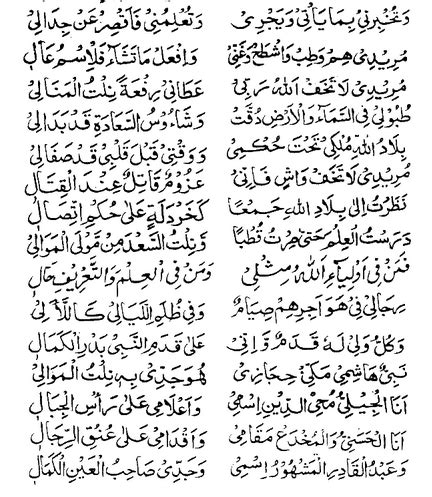 وَتُخْبِرُنِي بِمَا يَأْتِي وَيَجْرِي وَتُعْلِمُنِي فَاَقْصِرْ عَنْ جِدَالِي
مُرِيدِي هِمْ وَطِبْ وَاشْطَحْ وَغَنِّي وَاِفْعَلْ مَا تَشَاءُ فَالْاِسْمُ عَالِي
مُرِيدِي لَا تَخَفْ اَللهُ رَبِّي عَطَانِي رِفْعَةً نِلْتُ الْمَنَالِي
طُبُولِي فِي السَّمَاءِ وَالْاَرْضِ دُقَّتْ وَشَاءُوسُ السَّعَادَةِ قَدْ بَدَالِي
بِلَادُ اللهِ مُلْكِي تَحْتَ حُكْمِي وَوَقْتِي قَبْلَ قَلْبِي قَدْ صَفَالِي
مُرِيدِي لَا تَخَفْ وَاشٍ فَاِنِّي عَزُومٌ قَاتِلٌ عِنْدَ الْقِتَالِ
نَظَرْتُ اِلَى بِلَادِ اللهِ جَمْعًا كَخَرْدَلَةٍ عَلَى حُكْمِ اتِّصَالِ
دَرَسْتُ الْعِلْمَ حَتَّى صِرْتُ قُطْبًا وَنِلْتُ السَّعْدَ مِنْ مَوْلَى الْمَوَالِي
فَمَنْ فِي اَوْلِيَاءِ اللهِ مِثْلِي وَمَنْ فِي الْعِلْمِ وَالتَّصْرِيفِ حَالِ
رِجَالِي فِي هَوَاجِرِهِمْ صِيَامٌ وَفِي ظُلَمِ اللَّيَالِي كَاللَّآلِي
وَكُلُّ وَلِيٍّ لَهُ قَدَمٌ وَاِنِّي عَلَى قَدَمِ النَّبِي بَدْرِ الْكَمَالِ
نَبِيٌّ هَاشِمِيٌّ مَكِّي حِجَازِي هُوَ جَدِّي بِهِ نِلْتُ الْمَوَالِي
اَنَا الْجِيلِيُّ مُحْيِ الدِّينِ اِسْمِي وَاَعْلَامِي عَلَى رَأْسِ الْجِبَالِ
اَنَا الْحَسَنِيُّ وَالْمُخْدَعْ مَقَامِي وَاَقْدَامِي عَلَى عُنُقِ الرِّجَالِ
وَعَبْدُ الْقَادِرِ الْمَشْهُورُ اِسْمِي وَجَدِّي صَاحِبُ الْعَيْنِ الْكَمَالِ